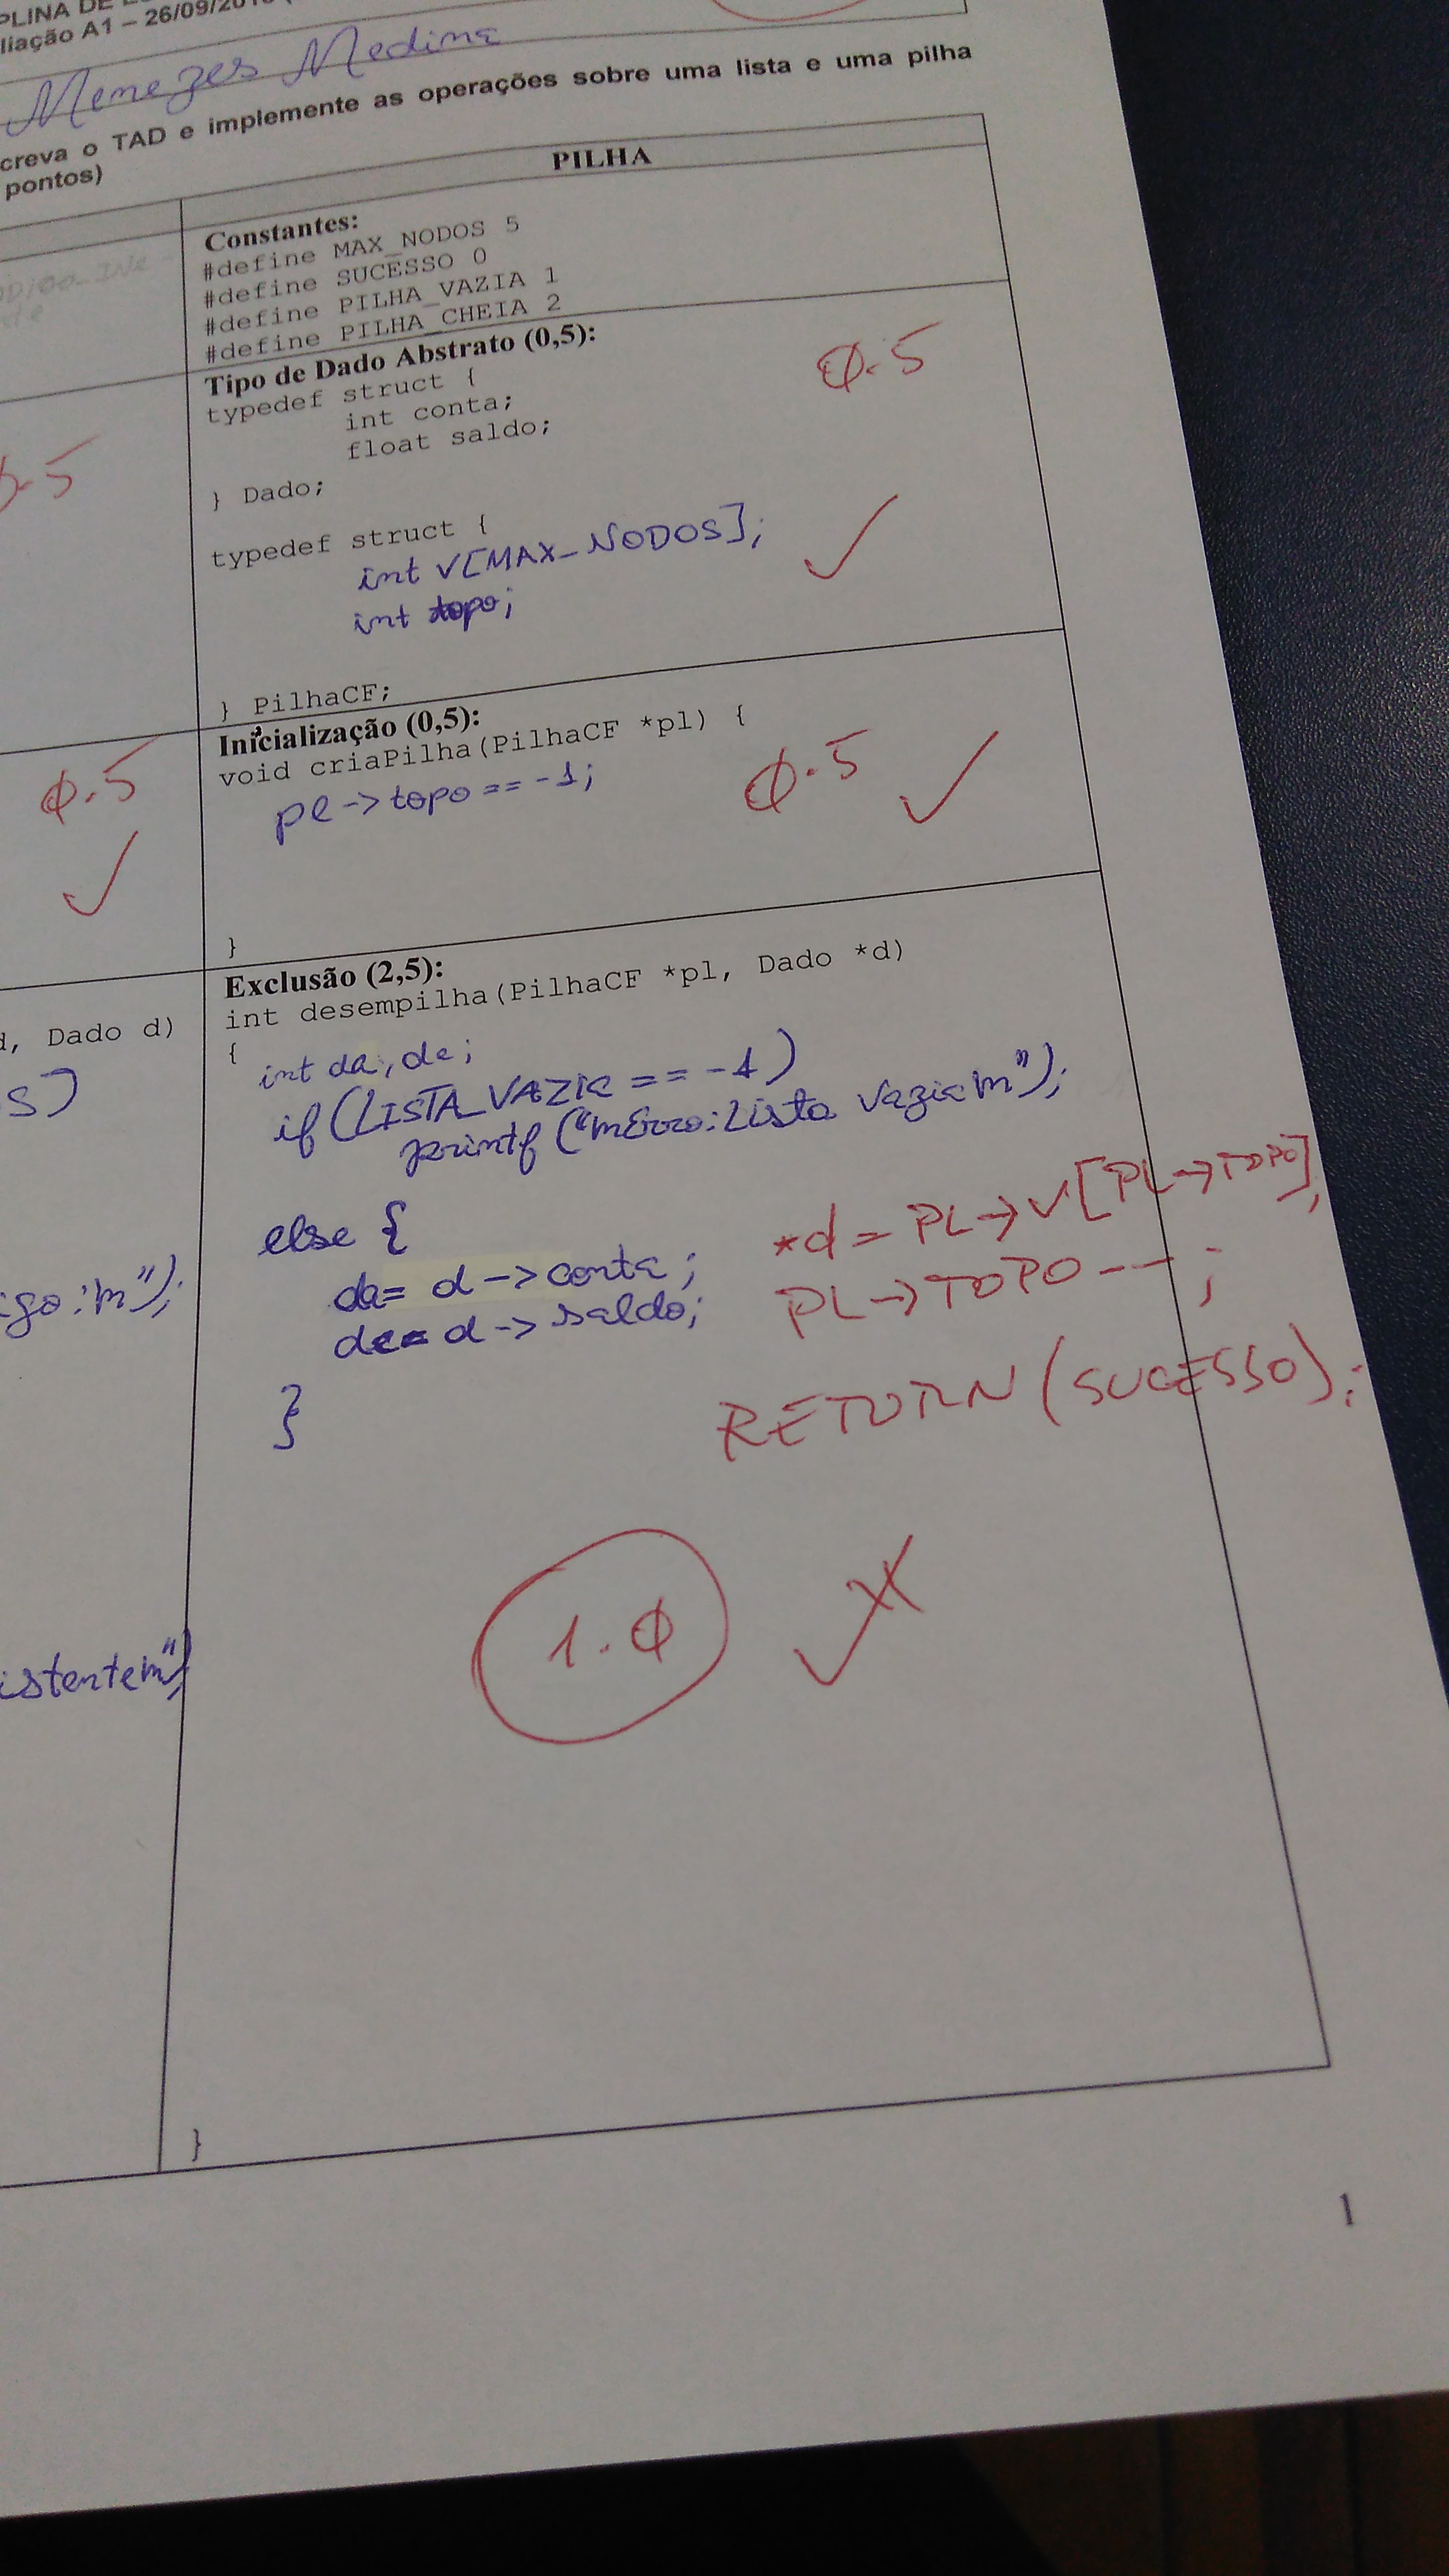 liação A1 – 26/09/201
Menezes Medina
creva o TAD e implemente as operações sobre uma lista e uma pilha
pontos)
PILHA
Constantes:
#define MAX_NODOS 5
#define SUCESSO 0
#define PILHA_VAZIA 1
#define PILHA_CHEIA 2
Tipo de Dado Abstrato (0,5):
typedef struct {
int conta;
float saldo;
} Dado;
0.5
typedef struct {
int v[MAX_NODOS];
int topo;
} PilhaCF;
Inicialização (0,5):
void criaPilha(PilhaCF *pl) {
pl->topo == -1;
0.5
}
Exclusão (2,5):
int desempilha(PilhaCF *pl, Dado *d)
{
int da, de;
if (LISTA_VAZIA == -1)
printf ("\nErro: Lista vazia\n");
else {
da= d -> conta;
de= d -> saldo;
}
*d = PL->V[PL->TOPO];
PL->TOPO--;
RETURN (SUCESSO);
1.0
}
.5
0.5
d, Dado d)
s)
igo:\n");
istente\n")
1